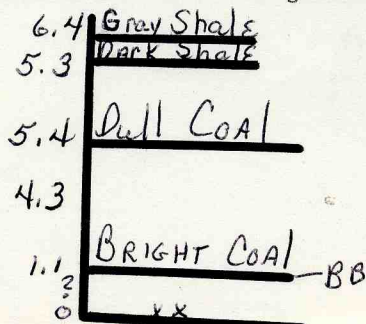 6.4 Gray Shale
5.3 Dark Shale
5.4 Dull COAl
4.3
1.1 BRIGHT COAl BB
?
0 xx